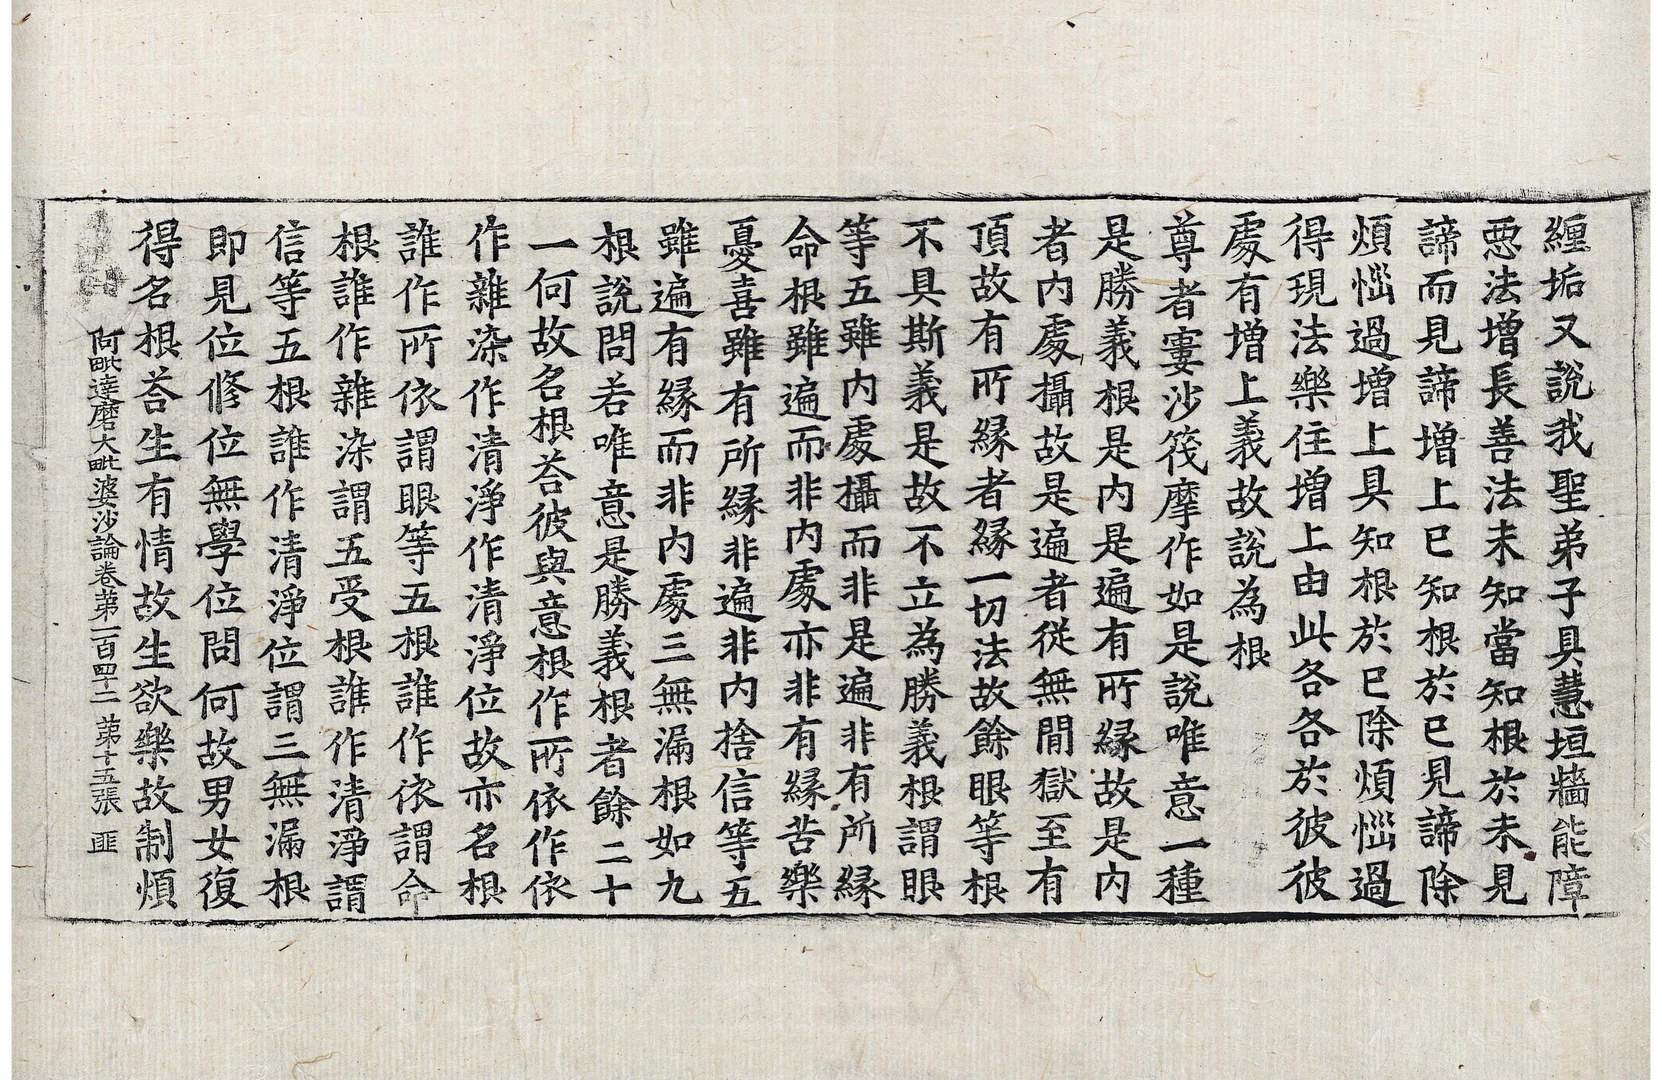 纏垢又說我聖弟子具慧垣牆能障
惡法增長善法未知當知根於未見
諦而見諦增上已知根於已見諦除
煩惱過增上具知根於已除煩惱過
得現法樂住增上由此各各於彼彼
處有增上義故說為根
尊者寠沙筏摩作如是說唯意一種
是勝義根是內是遍有所緣故是內
者內處攝故是遍者從無閒獄至有
頂故有所緣者緣一切法故餘眼等根
不具斯義是故不立為勝義根謂眼
等五雖內處攝而非是遍非有所緣
命根雖遍而非內處亦非有緣苦樂
憂喜雖有所緣非遍非內捨信等五
雖遍有緣而非內處三無漏根如九
根說問若唯意是勝義根者餘二十
一何故名根荅彼與意根作所依作依
作雜染作清淨作清淨位故亦名根
誰作所依謂眼等五根誰作依謂命
根誰作雜染謂五受根誰作清淨謂
信等五根誰作清淨位謂三無漏根
即見位修位無學位問何故男女復
得名根荅生有情故生欲樂故制煩
阿毗達磨大毗婆沙論卷第一百四十二 第十五張 匪